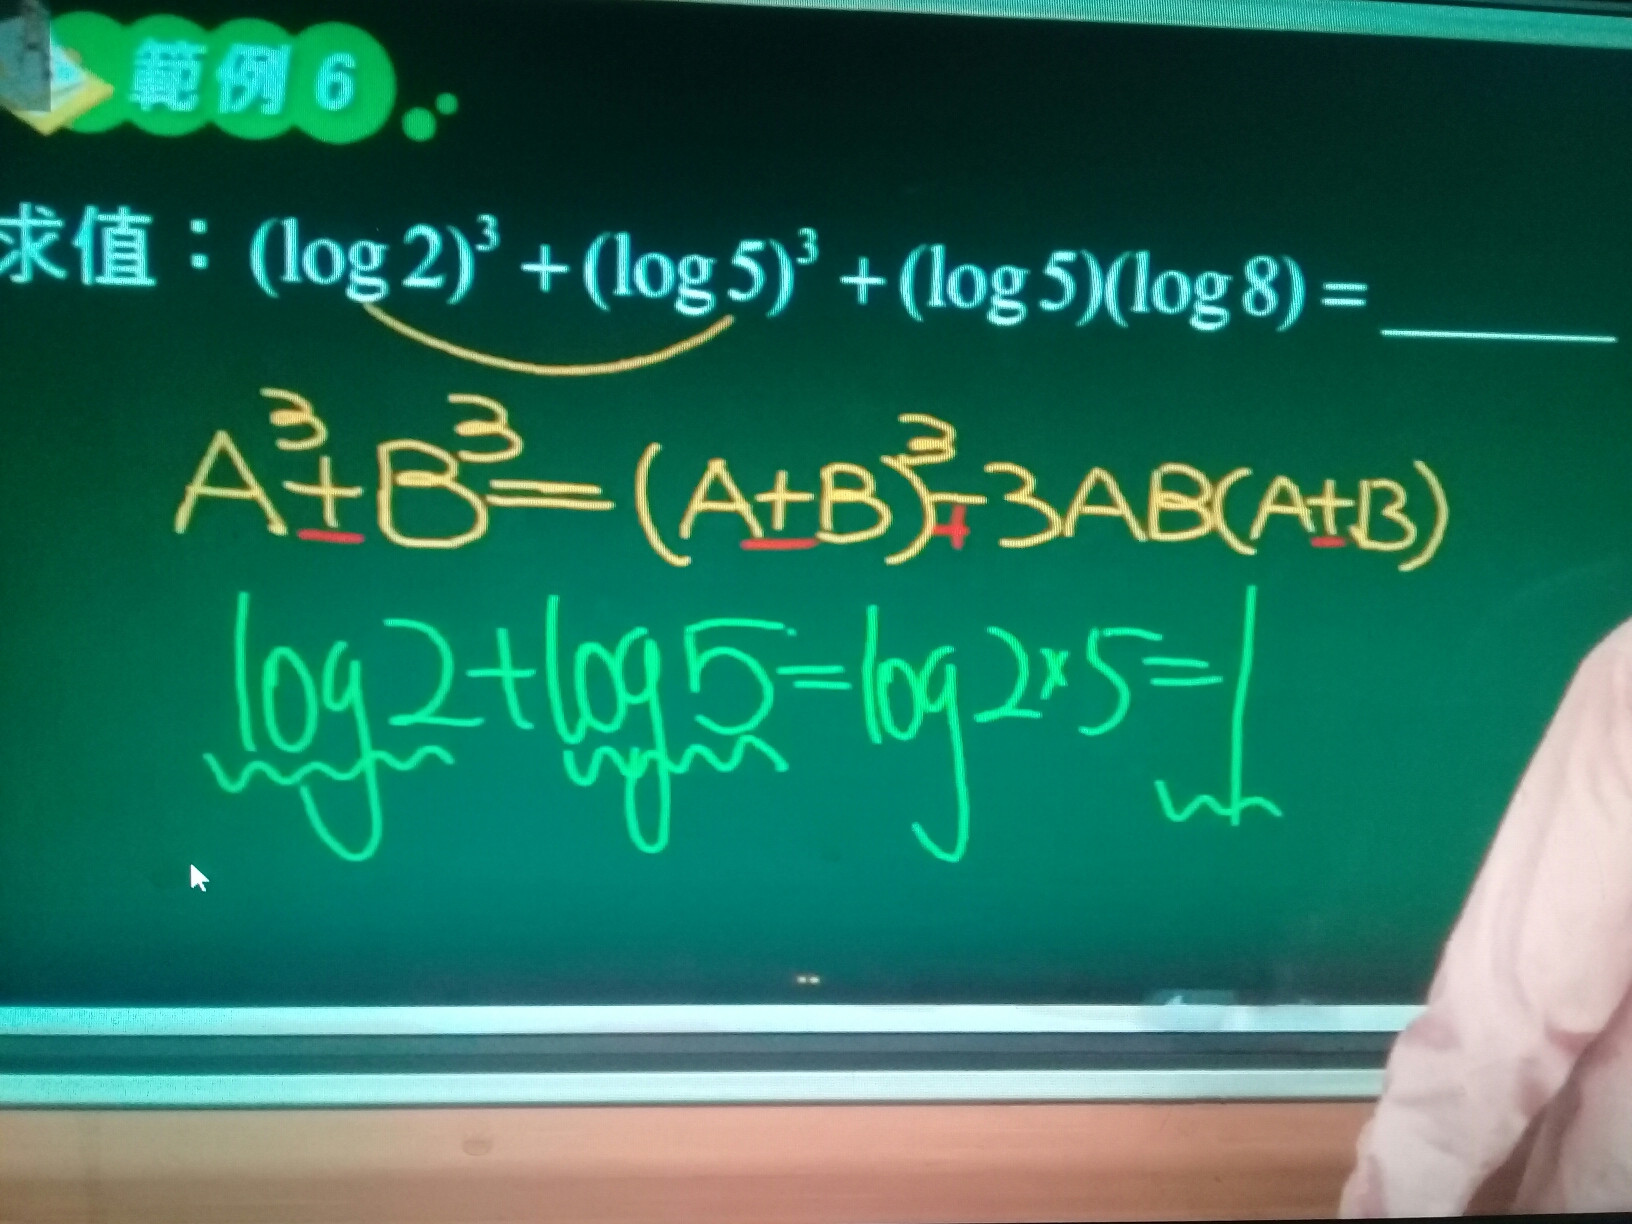 範例 6
求值：(log 2)³ + (log 5)³ + (log 5)(log 8) = ______
A³±B³=(A±B)³∓3AB(A±B)
log2+log5=log2×5=1